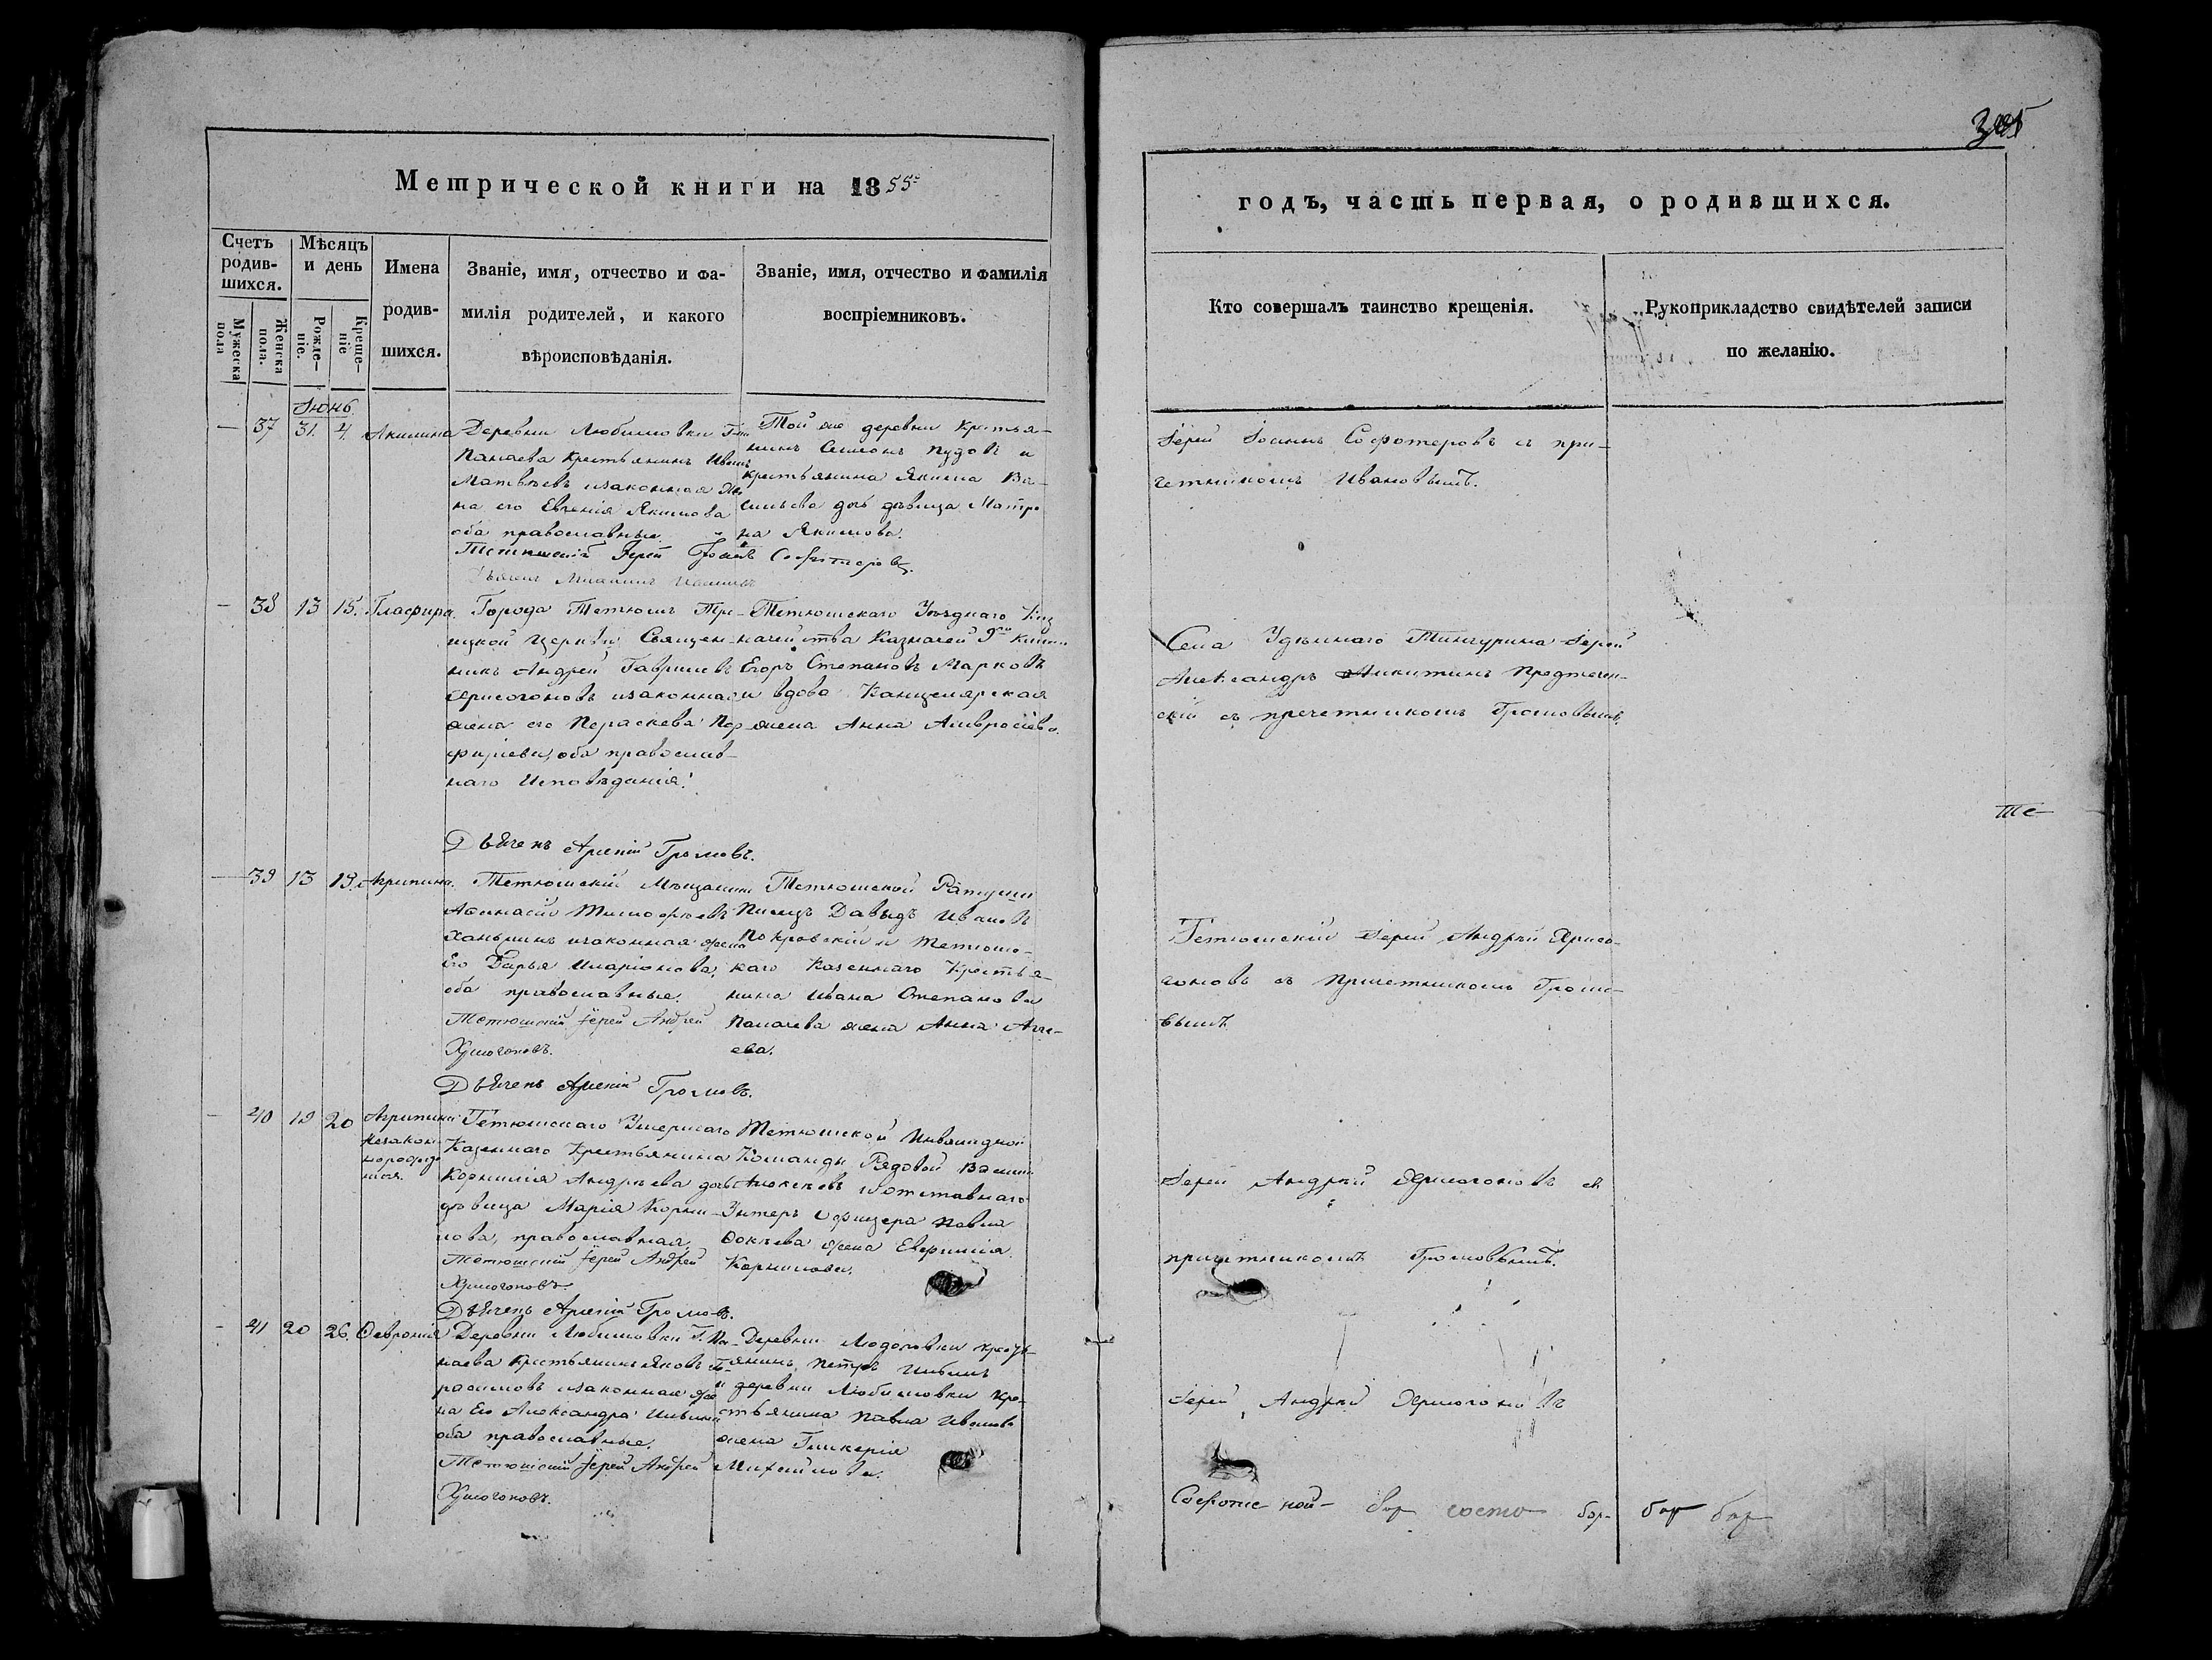 Метрической книги на 1855
годъ, часть первая, о родившихся.
Счетъ родив-шихся.
Мужеска пола
Женска пола.
Мѣсяцъ и день
Рожде-ніе.
Креще-ніе
Имена
родив-
шихся.
Званіе, имя, отчество и фа-
милія родителей, и какого
вѣроисповѣданія.
Званіе, имя, отчество и фамилія
воспріемниковъ.
Кто совершалъ таинство крещенія.
Рукоприкладство свидѣтелей записи
по желанію.
Іюнь
37 31. 4. Акилина
Деревни Любимовки Г-на
Панаева Крестьянинъ Иванъ
Матвѣевъ изаконная Же
на его Евгенія Якимова
оба православные.
Той же деревни Крестья-
нинъ Симонъ Пудовъ и
крестьянина Якима Ва-
сильева дочь дѣвица Матро
на Якимова.
Тетюшскій Іерей Іоаннъ Софотеровъ.
Іерей Іоаннъ Софотеровъ съ при-
четникомъ Ивановымъ.
38 13 15. Глафира.
Города Тетюшъ Тро-
ицкой Церкви Священ-
никъ Андрей Гавриловъ
Хрисогоновъ изаконная
жена его Параскева Пор
фиріева, оба православ-
наго Исповѣданія.
Тетюшскаго Уѣзднаго Каз
начейства Казначей 9го
Егоръ Степановъ Марковъ
и вдова Канцелярская
жена Анна Амвросіева.
Дьячекъ Арсеній Громовъ.
Села Удѣльнаго Тингурина Іерей
Александръ Никитинъ Предтечен-
скій съ пречетникомъ Громовымъ.
39 13 19. Агрипина.
Тетюшскій Мѣщанинъ
Афанасій Тимофѣевъ
Ханыкинъ изаконная жена
Его Дарья Иларіонова,
оба православные.
Тетюшскій Іерей Андрей
Хрисогоновъ.
Тетюшской Ратуши
Писецъ Давыдъ Ивановъ
Покровскій и Тетюшс-
каго Казеннаго Крестья-
нина Ивана Степанова
Палачева жена Анна Агге-
ева.
Дьячекъ Арсеній Громовъ.
Тетюшскій Іерей Андрей Хрисо-
гоновъ съ Причетникомъ Громо-
вымъ.
40 19 20 Агрипина
Незакон-
норожде
нная.
Тетюшскаго Умершаго
Казеннаго Крестьянина
Корнилія Андрѣева дочь
дѣвица Марія Корни-
лова, православная,
Тетюшскій Іерей Андрей
Хрисогоновъ.
Тетюшской Инвалидной
Команды Рядовой Василій
Алюкаевъ и отставнаго
Унтеръ Офицера Павла
Фокѣева жена Евфимія
Корнилова.
Дьячекъ Арсеній Громовъ.
Іерей Андрей Хрисогоновъ съ
причетникомъ Громовымъ.
41 20 26. Февронія
Деревни Любимовки Г. Па-
наева Крестьянинъ Яковъ Ге-
расимовъ изаконная же
на Его Александра Ильина
оба православные.
Тетюшскій Іерей Андрей
Хрисогоновъ.
Деревни Людоговки крест-
янинъ Петръ Ильинъ
и деревни Любимовки Кре-
стьянина Павла Иванова
жена Гликерія
Михайлова.
Іерей Андрей Хрисогоновъ